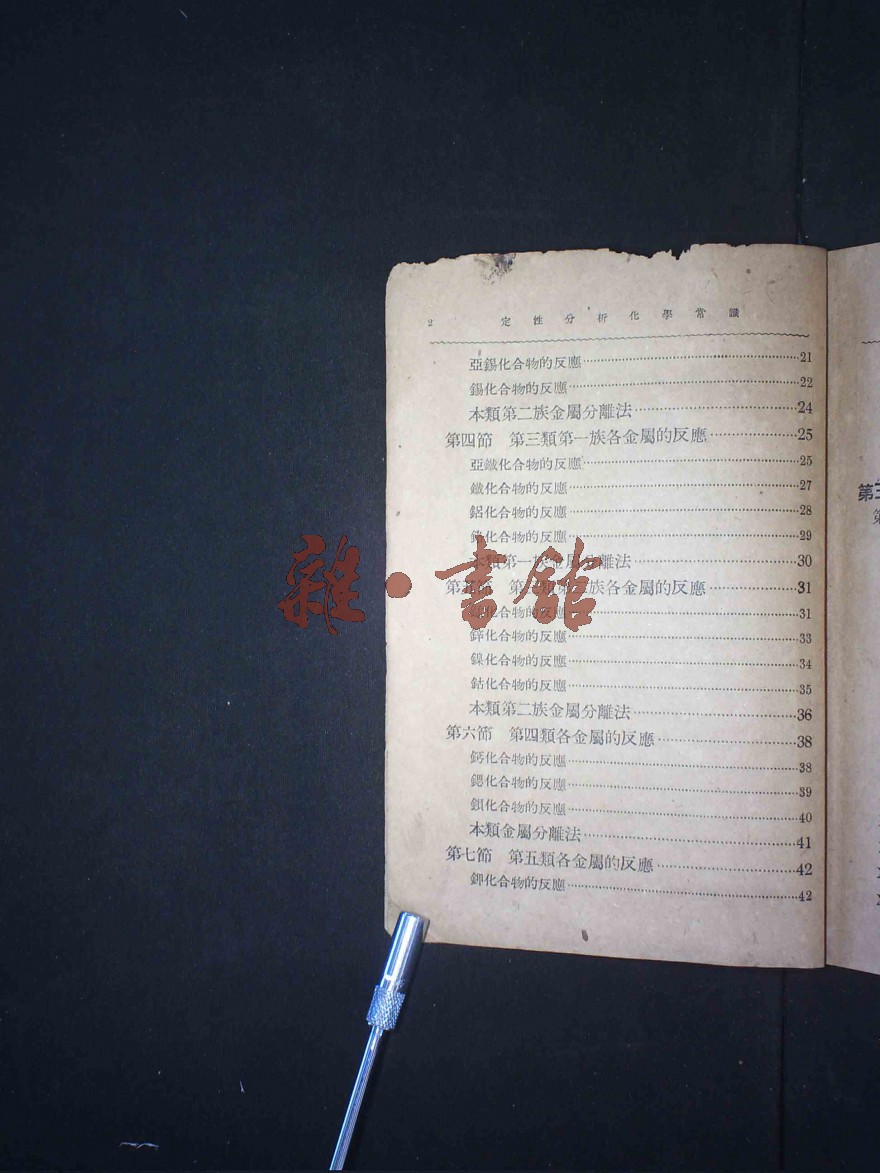 2 定性分析化學常識
亞錫化合物的反應 21
錫化合物的反應 22
本類第二族金屬分離法 24
第四節 第三類第一族各金屬的反應 25
亞鐵化合物的反應 25
鐵化合物的反應 27
鋁化合物的反應 28
化合物的反應 29
本類第一族金屬分離法 30
第五節 第三類第二族各金屬的反應 31
化合物的反應 31
鋅化合物的反應 33
鎳化合物的反應 34
鈷化合物的反應 35
本類第二族金屬分離法 36
第六節 第四類各金屬的反應 38
鈣化合物的反應 38
鍶化合物的反應 39
鋇化合物的反應 40
本類金屬分離法 41
第七節 第五類各金屬的反應 42
鉀化合物的反應 42
第三
第
雜·書館